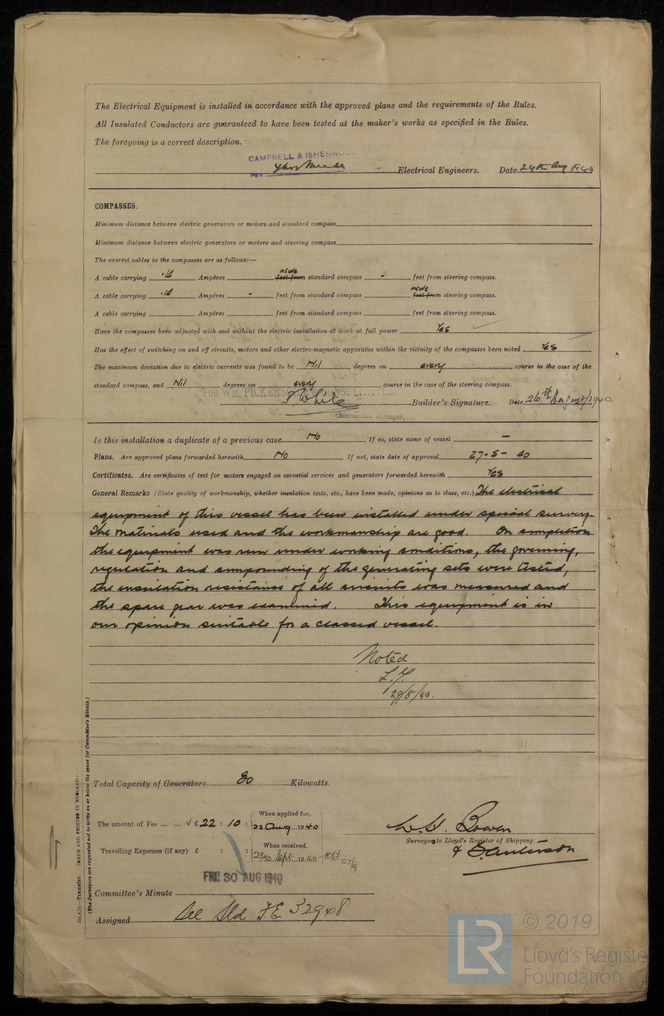 The Electrical Equipment is installed in accordance with the approved plans and the requirements of the Rules.
All Insulated Conductors are guaranteed to have been tested at the maker's works as specified in the Rules.
The foregoing is a correct description.
CAMPBELL & ISHERWOOD
Electrical Engineers. Date 24th Aug 1940
COMPASSES.
Minimum distance between electric generators or motors and standard compass
Minimum distance between electric generators or motors and steering compass
The nearest cables to the compasses are as follows:—
A cable carrying .18 Ampères inside feet from standard compass - feet from steering compass.
A cable carrying .18 Ampères - feet from standard compass inside feet from steering compass.
A cable carrying Ampères feet from standard compass feet from steering compass.
Have the compasses been adjusted with and without the electric installation at work at full power Yes
Has the effect of switching on and off circuits, motors and other electro-magnetic apparatus within the vicinity of the compasses been noted Yes
The maximum deviation due to electric currents was found to be Nil degrees on every course in the case of the
standard compass, and Nil degrees on every course in the case of the steering compass.
FOR WM. PICKERSGILL & SONS, LIMITED.
J. White Builder's Signature. Date 26th August 1940
Is this installation a duplicate of a previous case No If so, state name of vessel —
Plans. Are approved plans forwarded herewith No If not, state date of approval 27-5-40
Certificates. Are certificates of test for motors engaged on essential services and generators forwarded herewith Yes
General Remarks (State quality of workmanship, whether insulation tests, etc., have been made, opinions as to class, etc.) The electrical
equipment of this vessel has been installed under special survey.
The materials used and the workmanship are good. On completion
the equipment was run under working conditions, the governing,
regulation and compounding of the generating sets were tested,
the insulation resistance of all circuits was measured and
the spare gear was examined. This equipment is in
our opinion suitable for a classed vessel.
Noted
29/8/40.
Total Capacity of Generators 30 Kilowatts.
The amount of Fee ... ... £ 22 : 10 : When applied for, 23 Aug 1940
Travelling Expenses (if any) £ : : When received, 23rd Sept 1940
W. G. Bowen
Surveyors to Lloyd's Register of Shipping.
& S. Anderson
FRI 30 AUG 1940
Committee's Minute
Assigned See Sld F.E. 32948
Transfer. (MADE AND PRINTED IN ENGLAND.)
(The Surveyors are requested not to write on or below the space for Committee's Minute.)
© 2019
LR
Lloyd's Register
Foundation